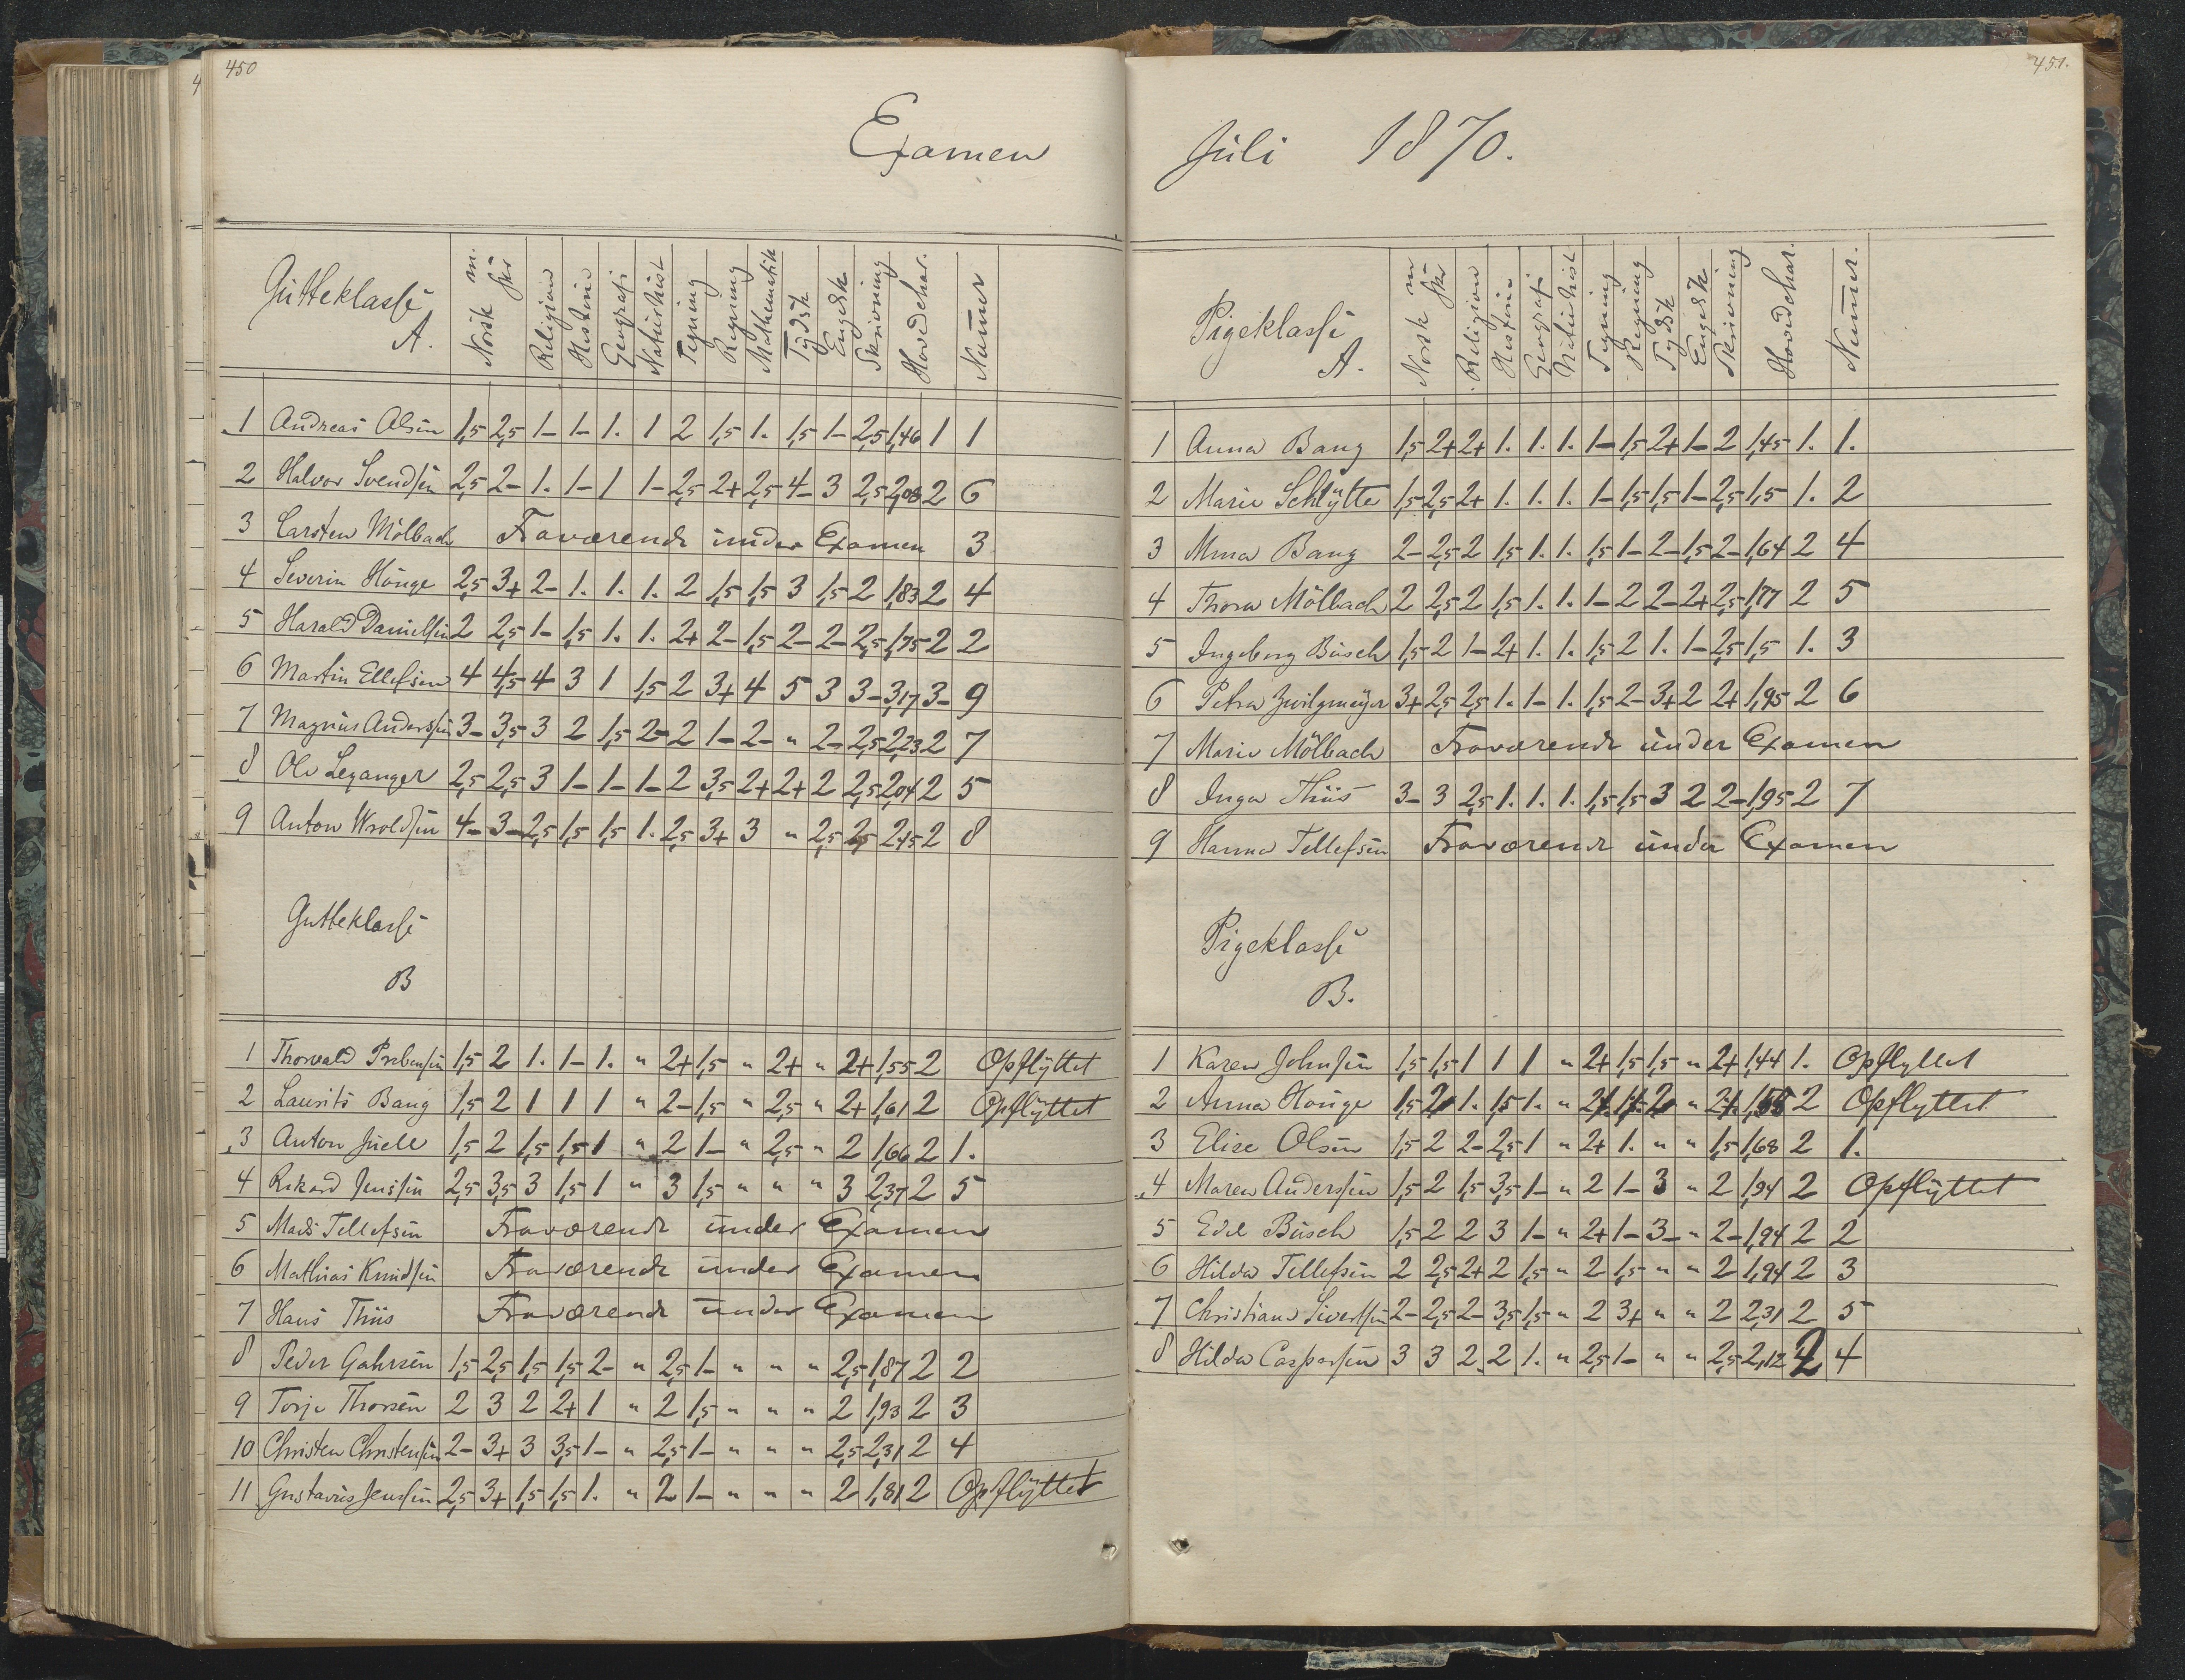 450
Examen
Gutteklasse A. Norsk m. skr Religion Historie Geografi Naturhist Tegning Regning Mathematik Tydsk Engelsk Skrivning Hovedchar. Nummer
1 Andreas Olsen 1,5 2,5 1- 1- 1. 1 2 1,5 1. 1,5 1- 2,5 1,46 1 1
2 Halvor Svendsen 2,5 2- 1. 1- 1 1- 2,5 2+ 2,5 4- 3 2,5 2,08 2 6
3 Carsten Mölbach Fraværende under Examen 3
4 Severin Houge 2,5 3+ 2- 1. 1. 1. 2 1,5 1,5 3 1,5 2 1,83 2 4
5 Harald Danielsen 2 2,5 1- 1,5 1. 1. 2+ 2- 1,5 2- 2- 2,5 1,75 2 2
6 Martin Ellefsen 4 4,5 4 3 1 1,5 2 3+ 4 5 3 3- 3,17 3- 9
7 Magnus Anderssen 3- 3,5 3 2 1,5 2- 2 1- 2- " 2- 2,5 2,23 2 7
8 Ole Leganger 2,5 2,5 3 1- 1- 1- 2 3,5 2+ 2+ 2 2,5 2,04 2 5
9 Anton Wroldsen 4- 3- 2,5 1,5 1,5 1. 2,5 3+ 3 " 2,5 2,5 2,45 2 8
Gutteklasse
B
1 Thorvald Prebensen 1,5 2 1. 1- 1. " 2+ 1,5 " 2+ " 2+ 1,55 2 Opflyttet
2 Laurits Bang 1,5 2 1 1 1 " 2- 1,5 " 2,5 " 2+ 1,61 2 Opflyttet
3 Anton Juell 1,5 2 1,5 1,5 1 " 2 1- " 2,5 " 2 1,66 2 1.
4 Rikard Jenssen 2,5 3,5 3 1,5 1 " 3 1,5 " " " 3 2,37 2 5
5 Mads Tellefsen Fraværende under Examen
6 Mathias Knudsen Fraværende under Examen
7 Hans Thiis Fraværende under Examen
8 Peder Gahrsen 1,5 2,5 1,5 1,5 2- " 2,5 1- " " " 2,5 1,87 2 2
9 Torje Thorsen 2 3 2 2+ 1 " 2 1,5 " " " 2 1,93 2 3
10 Christen Christensen 2- 3+ 3 3,5 1- " 2,5 1- " " " 2,5 2,31 2 4
11 Gustavus Jenssen 2,5 3+ 1,5 1,5 1. " 2 1- " " " 2 1,81 2 Opflyttet
451.
Juli 1870.
Pigeklasse A. Norsk m skr Religion Historie Geografi Naturhist Tegning Regning Tydsk Engelsk Skrivning Hovedchar. Nummer.
1 Anna Bang 1,5 2+ 2+ 1. 1. 1. 1- 1,5 2+ 1- 2 1,45 1. 1.
2 Marie Schlytte 1,5 2,5 2+ 1. 1. 1. 1- 1,5 1,5 1- 2,5 1,5 1. 2
3 Mina Bang 2- 2,5 2 1,5 1. 1. 1,5 1- 2- 1,5 2- 1,64 2 4
4 Thora Mölbach 2 2,5 2 1,5 1. 1. 1- 2 2- 2+ 2,5 1,77 2 5
5 Ingeborg Busch 1,5 2 1- 2+ 1. 1. 1,5 2 1. 1- 2,5 1,5 1. 3
6 Petra Zwilgmeyer 3+ 2,5 2,5 1. 1- 1. 1,5 2- 3+ 2 2+ 1,95 2 6
7 Marie Mölbach Fraværende under Examen
8 Inga Thiis 3- 3 2,5 1. 1. 1. 1,5 1,5 3 2 2- 1,95 2 7
9 Hanna Tellefsen Fraværende under Examen
Pigeklasse
B.
1 Karen Johnsen 1,5 1,5 1 1 1 " 2+ 1,5 1,5 " 2+ 1,44 1. Opflyttet
2 Anna Houge 1,5 2 1. 1,5 1. " 2 " 2 Opflyttet
3 Elise Olsen 1,5 2 2- 2,5 1 " 2+ 1. " " 1,5 1,68 2 1.
4 Maren Anderssen 1,5 2 1,5 3,5 1- " 2 1- 3 " 2 1,94 2 Opflyttet
5 Edle Busch 1,5 2 2 3 1- " 2+ 1- 3- " 2- 1,94 2 2
6 Hilda Tellefsen 2 2,5 2+ 2 1,5 " 2 1,5 " " 2 1,94 2 3
7 Christiane Sivertsen 2- 2,5 2- 3,5 1,5 " 2 3+ " " 2 2,31 2 5
8 Hilda Caspersen 3 3 2. 2 1. " 2,5 1- " " 2,5 2,12 2 4